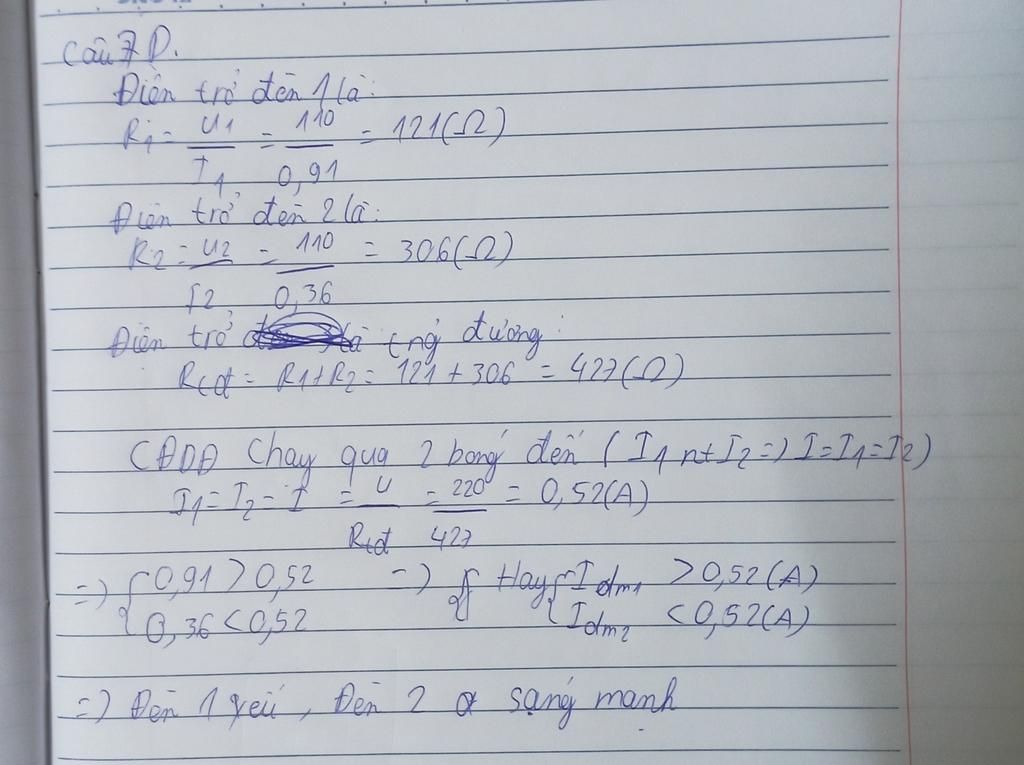 Câu 7 D.
Điện trở đèn 1 là:
R1 = U1/I1 = 110/0,91 = 121(Ω)
Điện trở đèn 2 là:
R2 = U2/I2 = 110/0,36 = 306(Ω)
Điện trở tng đương:
Rtđ = R1+R2 = 121 + 306 = 427(Ω)
CĐDĐ chạy qua 2 bóng đèn (I1 nt I2 => I=I1=I2)
I1 = I2 = I = U/Rtđ = 220/427 = 0,52(A)
=> { 0,91 > 0,52 => { Hay { Iđm1 > 0,52(A)
{ 0,36 < 0,52 Iđm2 < 0,52(A)
=> Đèn 1 yếu, Đèn 2 sáng mạnh